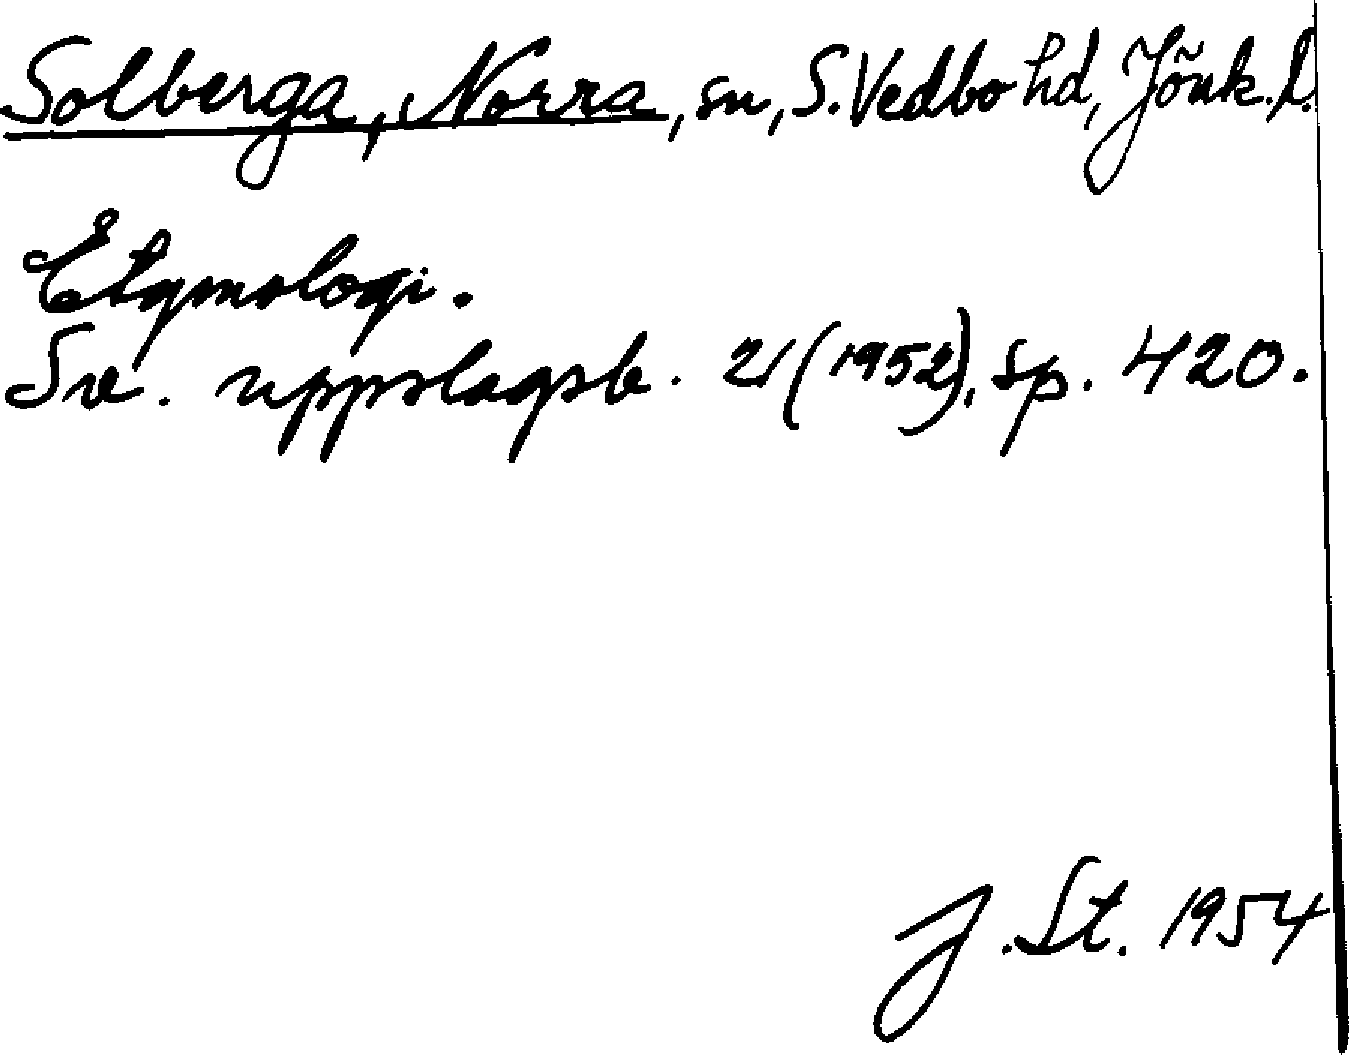 Solberga, Norra, sn, S. Vedbo hd, Jönk. l.
Etymologi.
Sv. uppslagsb. 21 (1952), sp. 420.
J. St. 1954